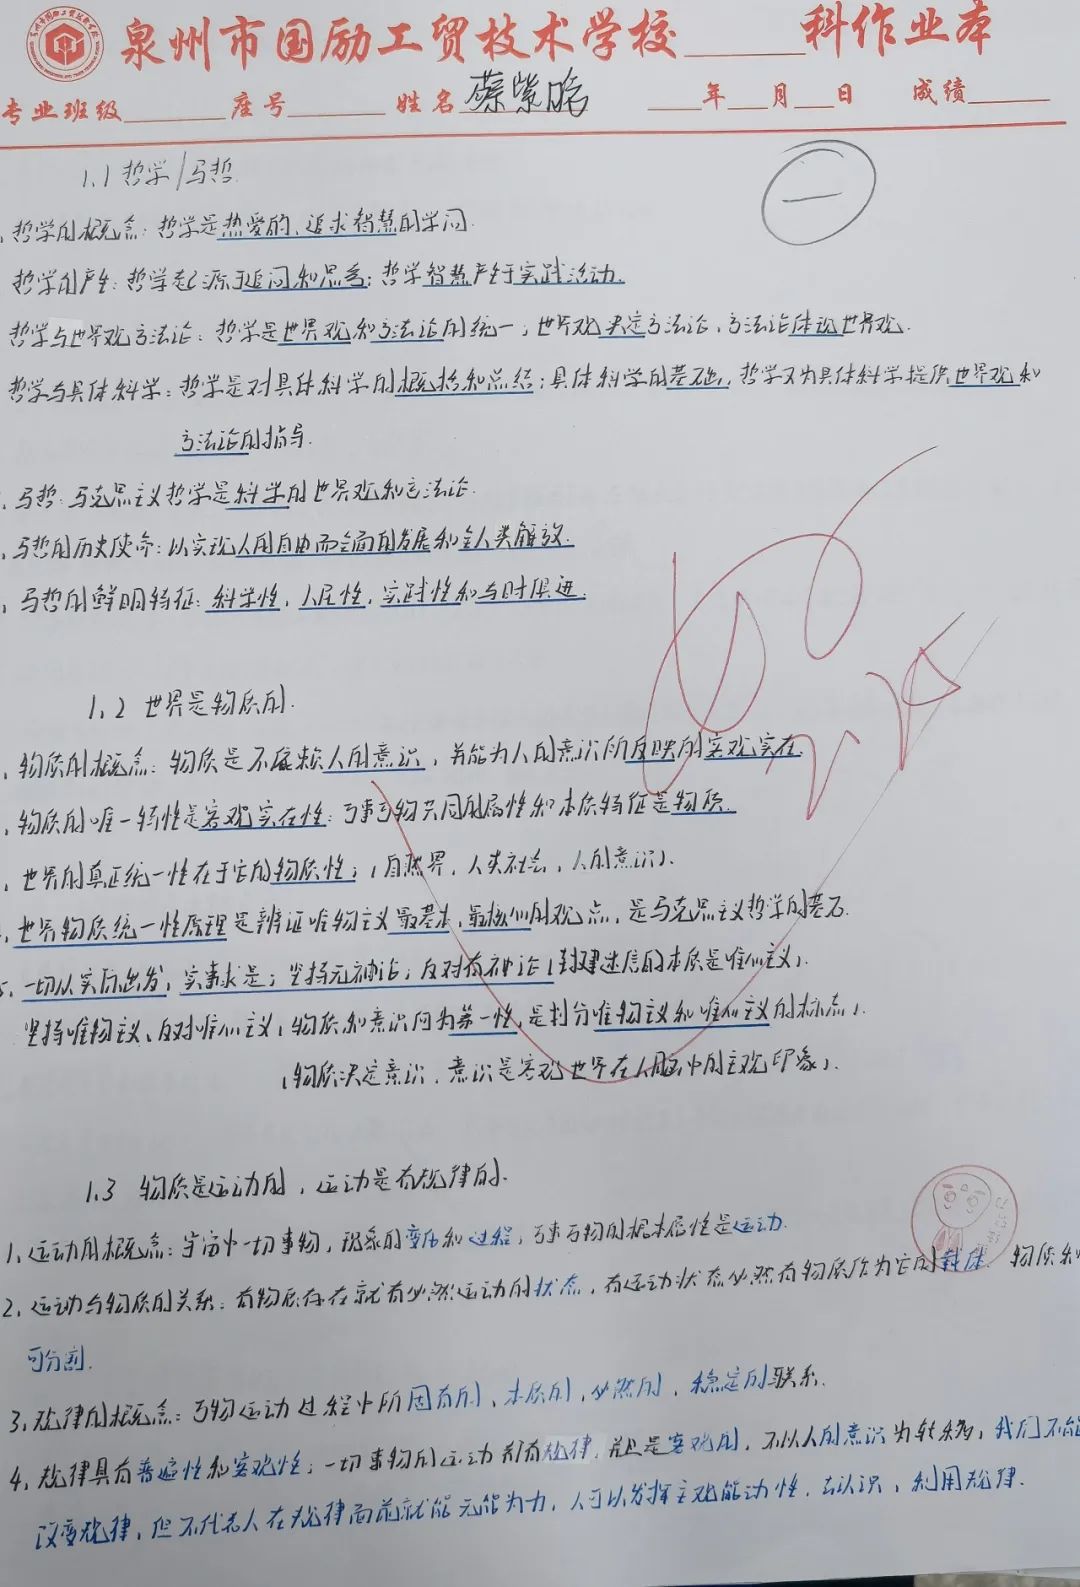 泉州市国励工贸技术学校______科作业本
专业班级______ 座号______ 姓名 蔡紫 ___年___月___日 成绩______
1.1 哲学/马哲.
一
、哲学的概念：哲学是热爱的、追求智慧的学问.
哲学的产生：哲学起源于追问和思考；哲学智慧产生于实践活动.
哲学与世界观方法论：哲学是世界观和方法论的统一；世界观决定方法论、方法论体现世界观.
哲学与具体科学：哲学是对具体科学的概括和总结；具体科学的基础，哲学又为具体科学提供世界观和
方法论的指导.
、马哲：马克思主义哲学是科学的世界观和方法论.
、马哲的历史使命：以实现人的自由而全面的发展和全人类解放.
、马哲的鲜明特征：科学性，人民性，实践性和与时俱进.
1.2 世界是物质的.
、物质的概念：物质是不依赖人的意识，并能为人的意识所反映的客观实在.
、物质的唯一特性是客观实在性：万事万物共同的属性和本质特征是物质.
、世界的真正统一性在于它的物质性；（自然界，人类社会，人的意识）.
、世界物质统一性原理是辨证唯物主义最基本，最核心的观点，是马克思主义哲学的基石.
5、一切从实际出发，实事求是；坚持无神论；反对有神论（封建迷信的本质是唯心主义）.
坚持唯物主义、反对唯心主义（物质和意识何为第一性，是划分唯物主义和唯心主义的标志）.
（物质决定意识，意识是客观世界在人脑中的主观印象）.
1.3 物质是运动的，运动是有规律的.
1、运动的概念：宇宙中一切事物，现象的变化和过程，万事万物的根本属性是运动.
2、运动与物质的关系：有物质存在就有必然运动的状态，有运动状态必然有物质作为它的载体. 物质和
可分割.
3、规律的概念：万物运动过程中所固有的、本质的，必然的，稳定的联系.
4、规律具有普遍性和客观性；一切事物的运动都有规律，并且是客观的，不以人的意识为转移，我们不能
改变规律，但不代表人在规律面前就能无能为力，人可以发挥主观能动性，去认识，利用规律.